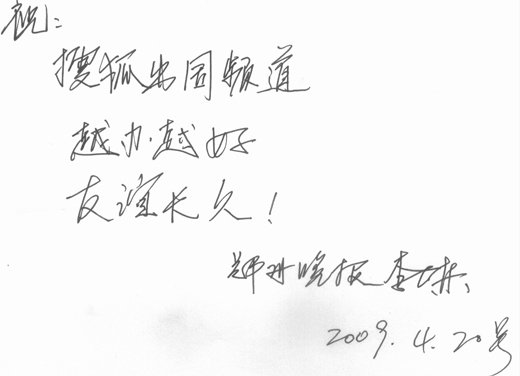 祝：
搜狐出国频道
越办越好
友谊长久！
郑州晚报 李
2009.4.20号